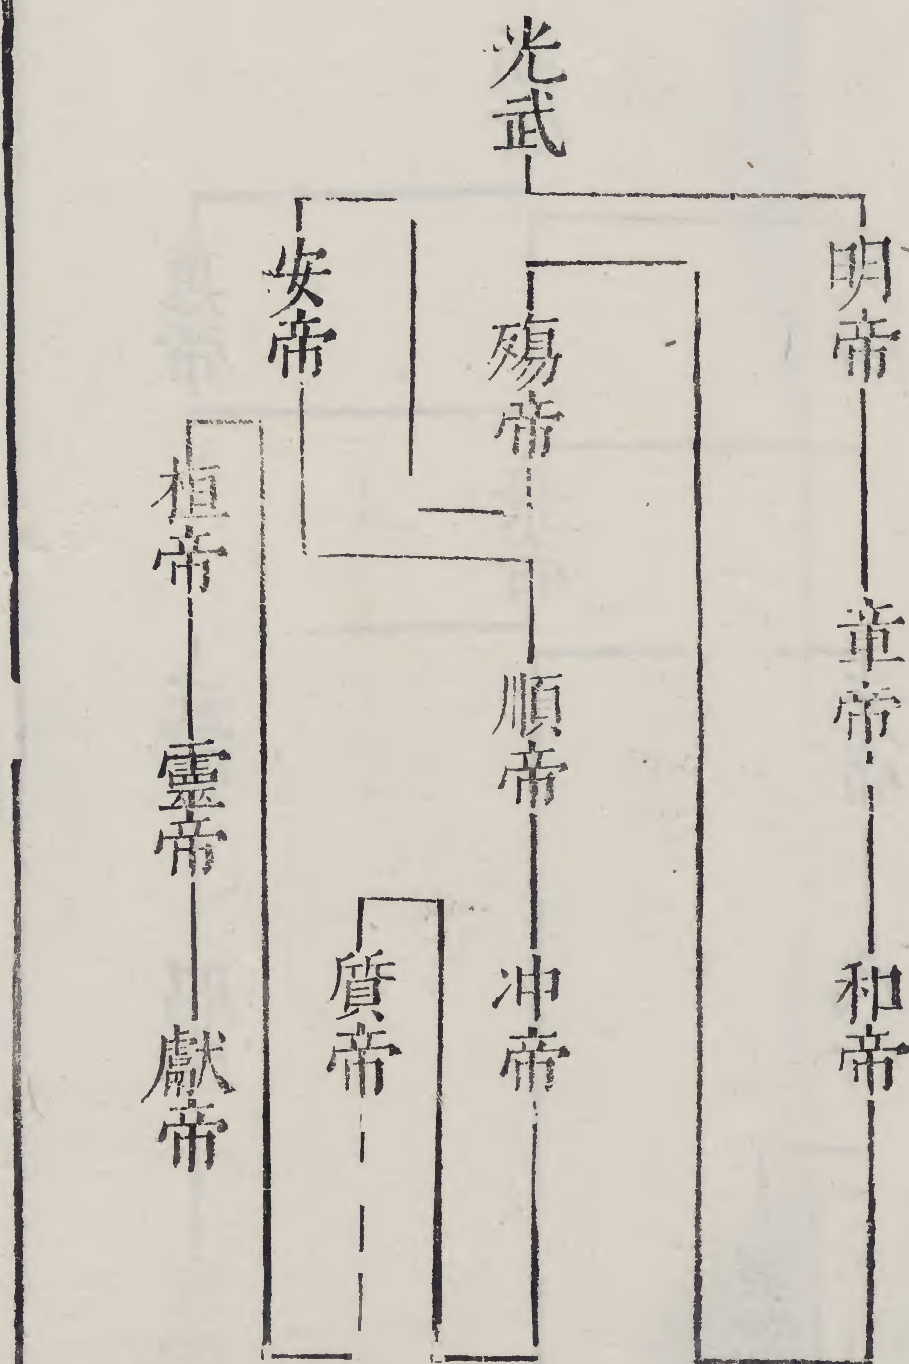 光武
明帝
章帝
和帝
殤帝
安帝
順帝
冲帝
質帝
桓帝
靈帝
獻帝